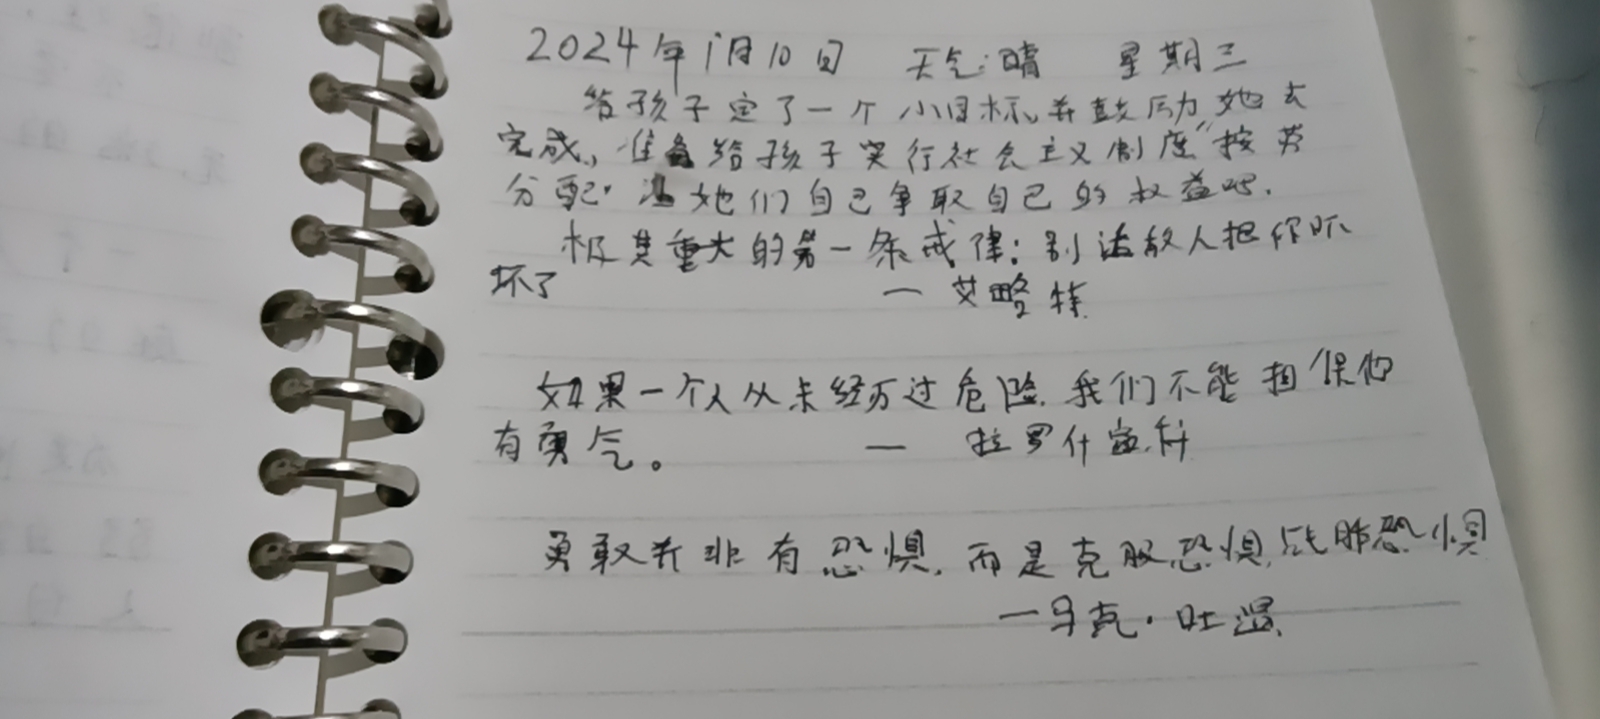 2024年1月10日 天气:晴 星期三
给孩子定了一个小目标,并鼓励她去
完成,准备给孩子实行社会主义制度"按劳
分配. 让她们自己争取自己的权益吧.
极其重大的第一条戒律:别让敌人把你吓
坏了 — 艾略特
如果一个人从未经历过危险,我们不能担保他
有勇气。 — 拉罗什富科
勇敢并非有恐惧,而是克服恐惧,战胜恐惧
—马克·吐温